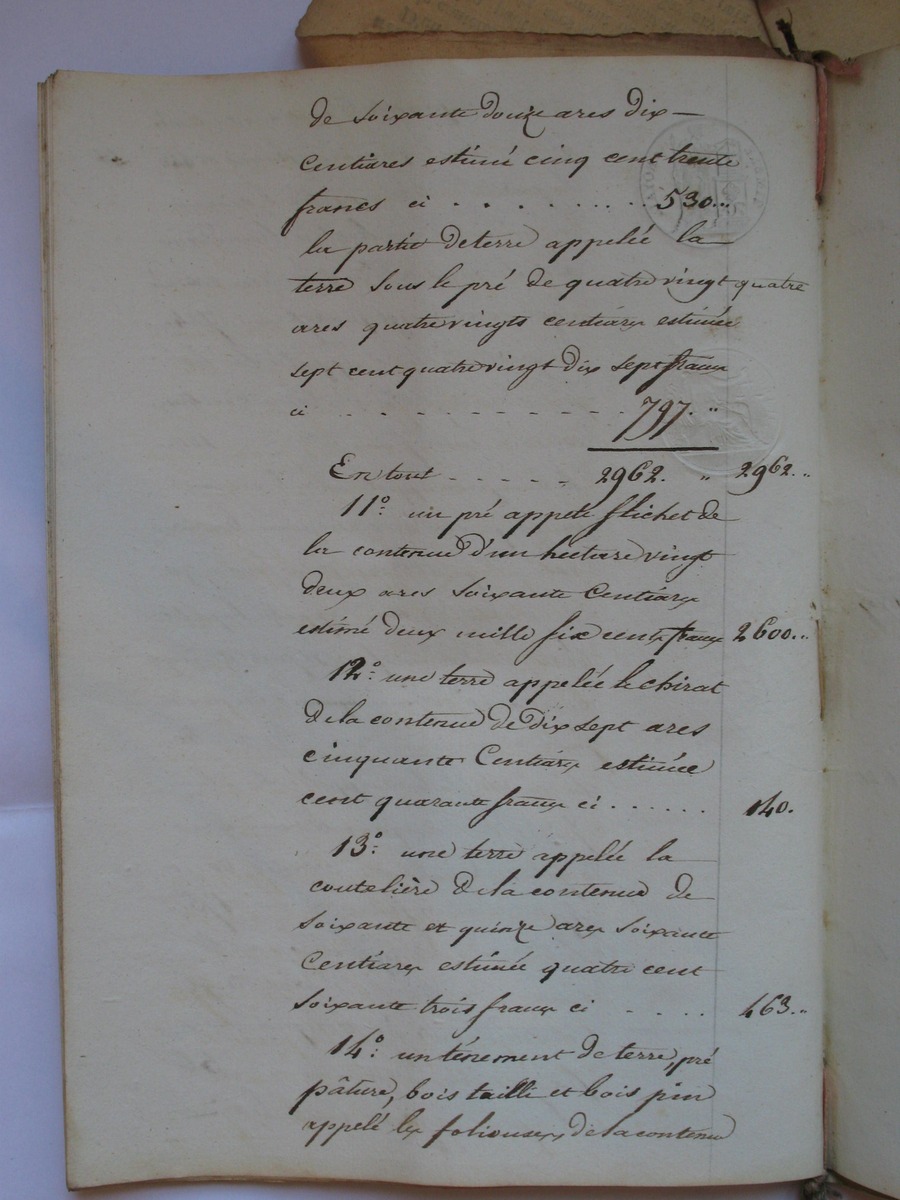 de soixante douze ares dix
centiares estimé cinq cent trente
francs ci . . . . . . . . . 530. "
la partie de terre appelée la
terre sous le pré de quatre vingt quatre
ares quatre vingts centiares estimée
sept cent quatre vingt dix sept francs
ci . . . . . . . . . . 797. "
En tout . . . . . 2962. " 2962. "
11° un pré appelé flichet de
la contenue d'un hectare vingt
deux ares soixante centiares
estimé deux mille six cents francs 2600. "
12° une terre appelée le chirat
de la contenue de dix sept ares
cinquante centiares estimée
cent quarante francs ci . . . . . . 140.
13° une terre appelée la
coutelière de la contenue de
soixante et quinze ares soixante
centiares estimée quatre cent
soixante trois francs ci . . . . 463. "
14° un ténement de terre, pré
pâture, bois tailli et bois pin
appelé les foliouses, de la contenue